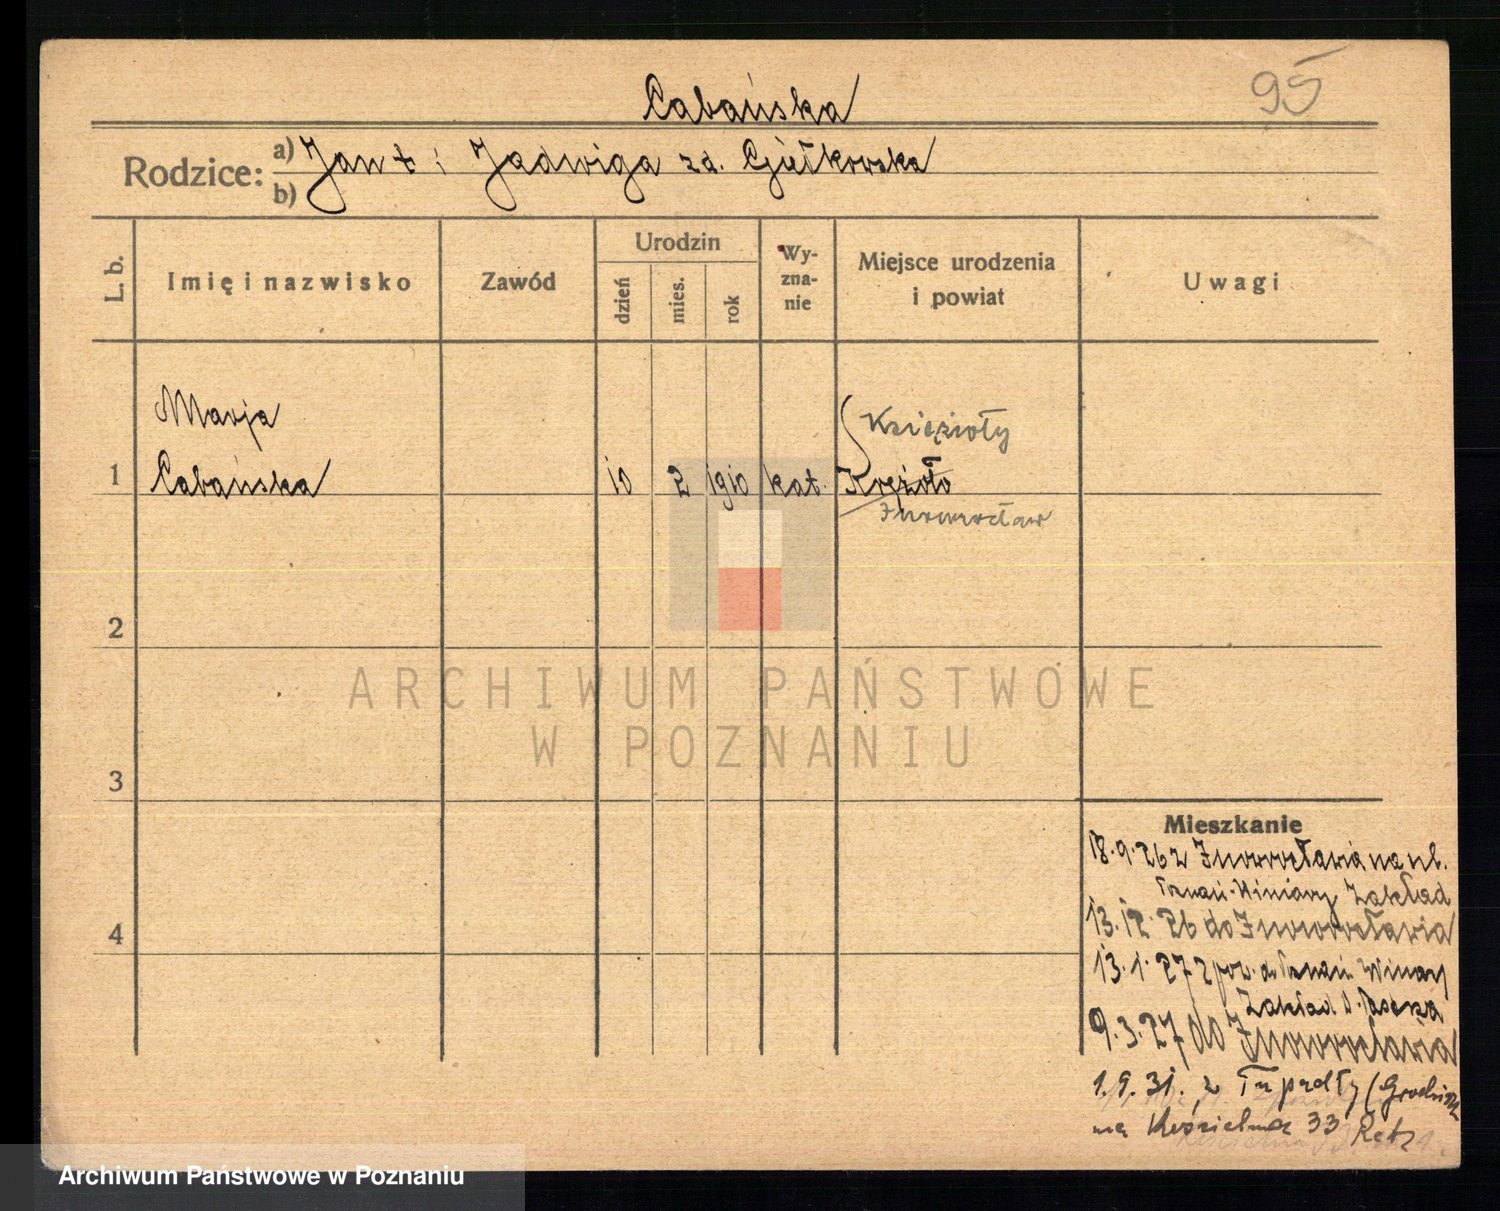 Cabańska
95
Rodzice: a) Jan † i Jadwiga zd. Gułkowska
b)
L. b.
Imię i nazwisko
Zawód
Urodzin
dzień
mies.
rok
Wy-
zna-
nie
Miejsce urodzenia
i powiat
Uwagi
Marja
Księżioły
1 Cabańska 10 2 1910 kat. Krężoło
Inowrocław
2
3
4
Mieszkanie
18.9.26 z Inowrocławia na ul.
Poznań-Winiary Zakład
13.12.26 do Inowrocławia
13.1.27 z pow. do Poznań Winiary
Zakład
9.3.27 do Inowrocławia
1.9.31. z Tupadły
na Kościelna 33
ARCHIWUM PAŃSTWOWE
W POZNANIU
Archiwum Państwowe w Poznaniu